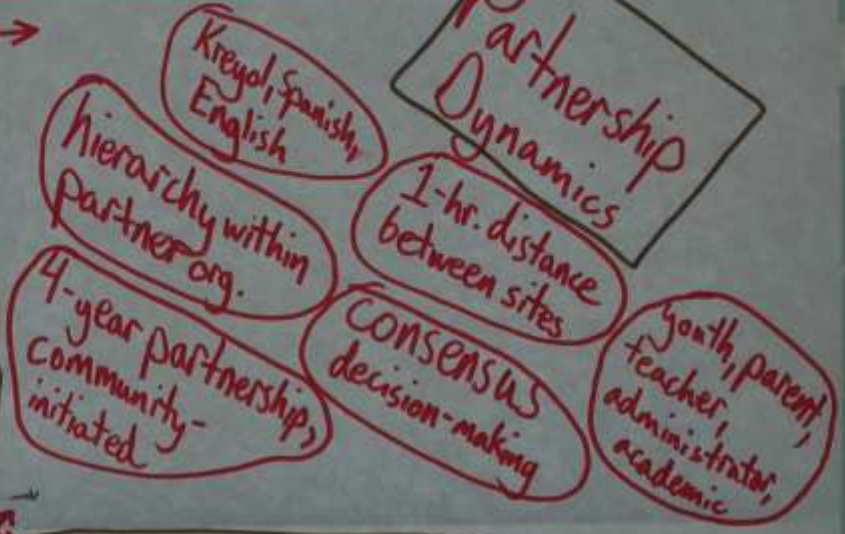 Partnership
Dynamics
Kreyol, Spanish,
English
hierarchy within
partner org.
1-hr. distance
between sites
4-year partnership,
community-
initiated
consensus
decision-making
youth, parent,
teacher,
administrator,
academic